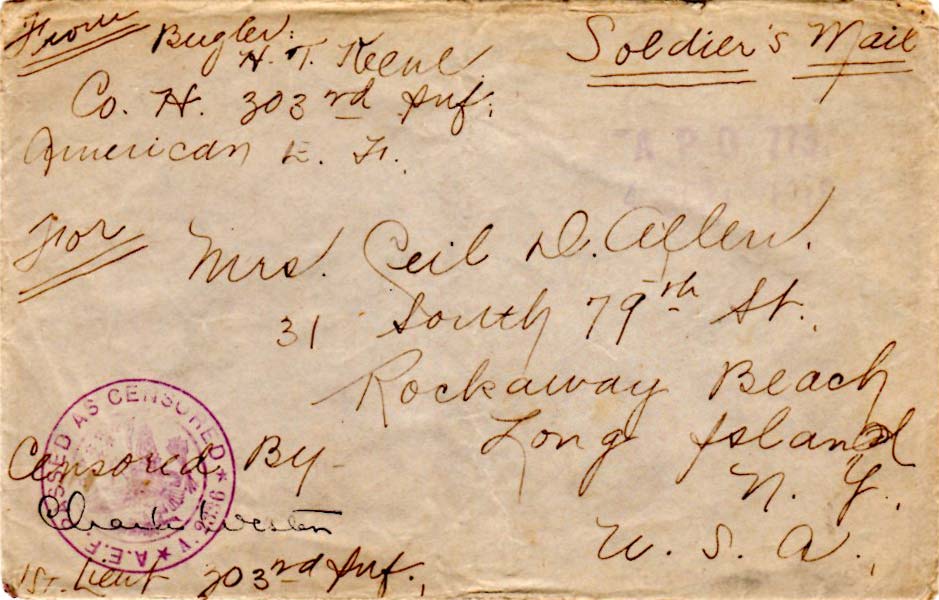 From Bugler. Soldier's Mail
H. T. Keene
Co. H. 303rd Inf.
American E. F.
A.P.O. 773
For Mrs. Ceil D. Allen.
31 South 79th St.
Rockaway Beach
Long Island
N. Y.
U. S. A.
Censored By
1st Lieut 303rd Inf.
PASSED AS CENSORED * * A.E.F.